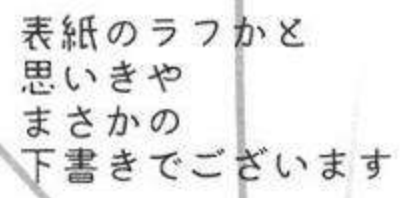 表紙のラフかと
思いきや
まさかの
下書きでございます